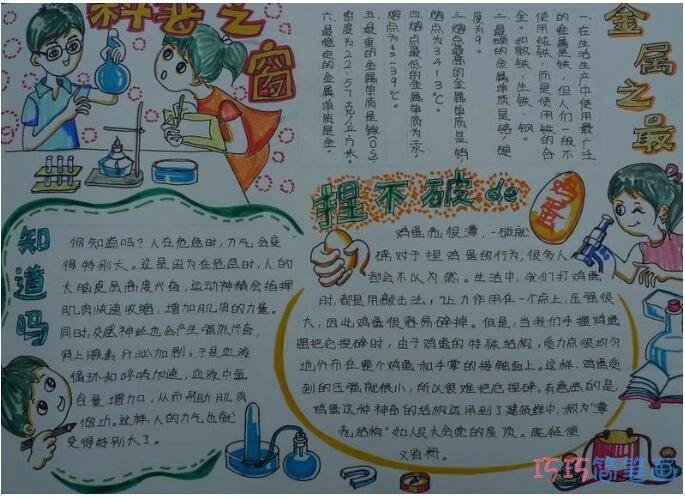 科技之窗
金属之最
一.在生活生产中使用最广泛
的金属是铁,但人们一般不
使用纯铁,而是使用铁的合
金,如软铁,生铁,钢.
二.最硬的金属单质是铬,硬
度为9。
三.熔点最高的金属单质是钨
熔点为3413℃
四.熔点最低的金属单质为汞,
熔点为-39℃。
五.最重的金属单质是锇(OS)
密度为22.57克/立方米。
六.最稳定的金属单质是金.
知道吗
你知道吗?人在危急时,力气会变
得特别大。这是因为在危急时,人的
大脑皮层高度兴奋,运动神精会指挥
肌肉快速收缩,增加肌肉的力量。
同时,交感神经也会产生强烈兴奋,
肾上腺素分泌加剧。于是血液
循环和呼吸加速,血液中氧
含量增加,从而帮助肌肉
做功。这样,人的力气也就
变得特别大了。
捏不破de鸡蛋
鸡蛋壳很薄,一碰就
碎对于捏鸡蛋的行为,很多人
都会不以为然。生活中,我们打鸡蛋
时,都是用敲击法,让力作用在一个点上,压强很
大,因此鸡蛋很容易碎掉。但是,当我们手握鸡蛋
握把它捏碎时,由于鸡蛋的特殊结构,受力点很均匀
地分布在整个鸡蛋和手掌的接触面上。这样,鸡蛋受
到的压强就很小,所以很难把它捏碎。有意思的是
鸡蛋这种神奇的结构运用到了建筑学中,称为"薄
壳结构"如人民大会堂的屋顶。既轻便
又省料
巧巧简笔画